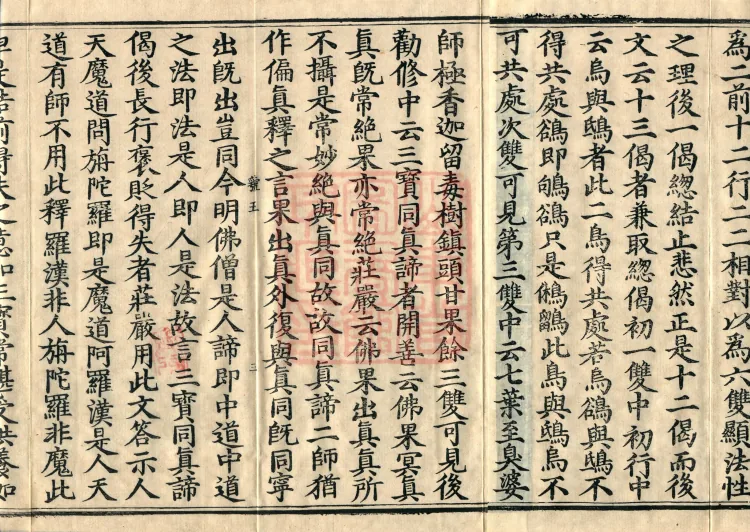 為二前十二行二二相對以為六雙顯法性
之理後一偈緫結止悲然正是十二偈而後
文云十三偈者兼取緫偈初一雙中初行中
云烏與鴟者此二鳥得共處若烏鵒與鴟不
得共處鵒即鴝鵒只是鵂鶹此鳥與鴟烏不
可共處次雙可見第三雙中云七葉至臭婆
師極香迦留毒樹鎮頭甘果餘三雙可見後
勸修中云三寶同真諦者開善云佛果冥真
真旣常絶果亦常絶莊嚴云佛果出真真所
不攝是常妙絶與真同故故同真諦二師猶
作偏真釋之言果出真外復與真同旣同寧
號王
三
出旣出豈同今明佛僧是人諦即中道中道
之法即法是人即人是法故言三寶同真諦
偈後長行褒貶得失者莊嚴用此文答示人
天魔道問旃陀羅即是魔道阿羅漢是人天
道有師不用此釋羅漢非人旃陀羅非魔此